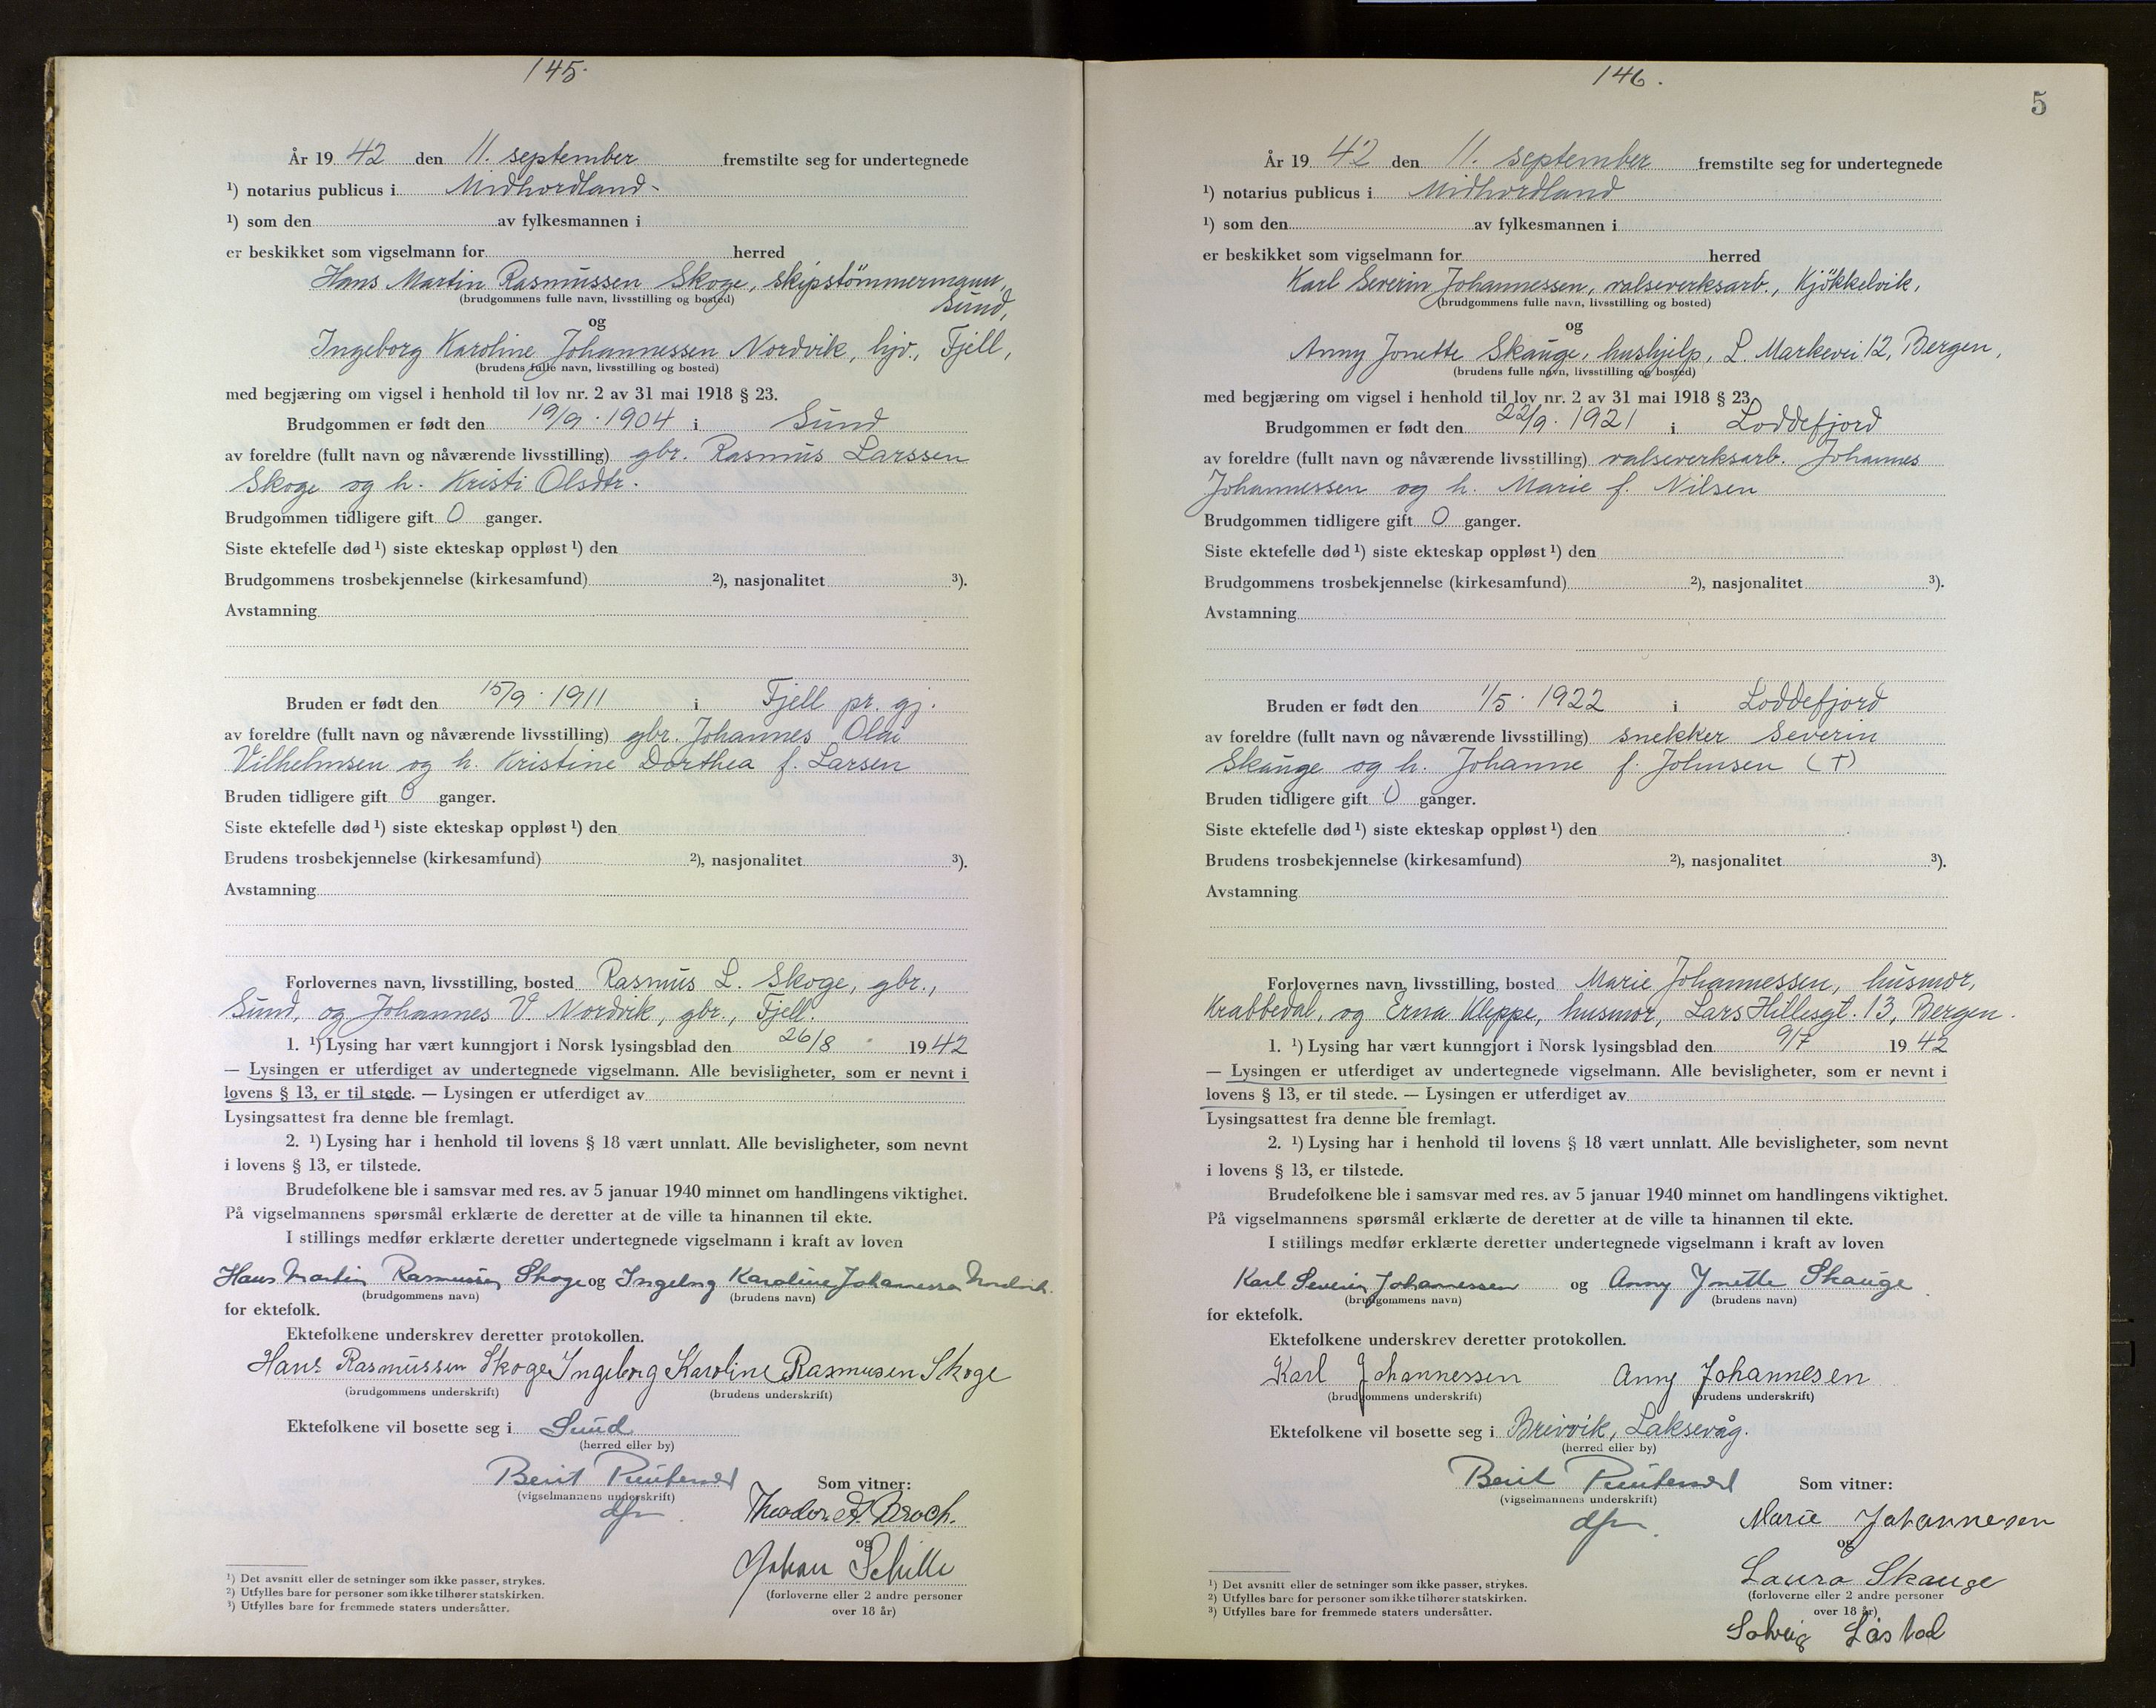 145.
År 19 42 den 11. september fremstilte seg for undertegnede
¹) notarius publicus i Midhordland-
¹) som den av fylkesmannen i
er beskikket som vigselmann for herred
Hans Martin Rasmussen Skoge, skipstömmermann,
(brudgommens fulle navn, livsstilling og bosted)
Sund,
og
Ingeborg Karoline Johannessen Nordvik, hjv., Fjell,
(brudens fulle navn, livsstilling og bosted)
med begjæring om vigsel i henhold til lov nr. 2 av 31 mai 1918 § 23.
Brudgommen er født den 19/9. 1904 i Sund
av foreldre (fullt navn og nåværende livsstilling) gbr. Rasmus Larssen
Skoge og h. Kristi Olsdtr.
Brudgommen tidligere gift 0 ganger.
Siste ektefelle død ¹) siste ekteskap oppløst ¹) den
Brudgommens trosbekjennelse (kirkesamfund) ²), nasjonalitet ³).
Avstamning
Bruden er født den 15/9. 1911 i Fjell pr. gj.
av foreldre (fullt navn og nåværende livsstilling) gbr. Johannes Olai
Vilhelmsen og h. Kristine Dorthea f. Larsen
Bruden tidligere gift 0 ganger.
Siste ektefelle død ¹) siste ekteskap oppløst ¹) den
Brudens trosbekjennelse (kirkesamfund) ²), nasjonalitet ³).
Avstamning
Forlovernes navn, livsstilling, bosted Rasmus L. Skoge, gbr.,
Sund, og Johannes V. Nordvik, gbr., Fjell.
1. ¹) Lysing har vært kunngjort i Norsk lysingsblad den 26/8 19 42
— Lysingen er utferdiget av undertegnede vigselmann. Alle bevisligheter, som er nevnt i
lovens § 13, er til stede. — Lysingen er utferdiget av
Lysingsattest fra denne ble fremlagt.
2. ¹) Lysing har i henhold til lovens § 18 vært unnlatt. Alle bevisligheter, som nevnt
i lovens § 13, er tilstede.
Brudefolkene ble i samsvar med res. av 5 januar 1940 minnet om handlingens viktighet.
På vigselmannens spørsmål erklærte de deretter at de ville ta hinannen til ekte.
I stillings medfør erklærte deretter undertegnede vigselmann i kraft av loven
Hans Martin Rasmussen Skoge og Ingeborg Karoline Johannessen Nordvik
(brudgommens navn) (brudens navn)
for ektefolk.
Ektefolkene underskrev deretter protokollen.
Hans Rasmussen Skoge Ingeborg Karoline Rasmusen Skoge
(brudgommens underskrift) (brudens underskrift)
Ektefolkene vil bosette seg i Sund
(herred eller by)
Berit
(vigselmannens underskrift)
dfm
Som vitner:
Theodor A. Broch.
og
Johan Schille
(forloverne eller 2 andre personer
over 18 år)
¹) Det avsnitt eller de setninger som ikke passer, strykes.
²) Utfylles bare for personer som ikke tilhører statskirken.
³) Utfylles bare for fremmede staters undersåtter.
146.
5
År 19 42 den 11. september fremstilte seg for undertegnede
¹) notarius publicus i Midhordland
¹) som den av fylkesmannen i
er beskikket som vigselmann for herred
Karl Severin Johannessen, valseverksarb., Kjökkelvik,
(brudgommens fulle navn, livsstilling og bosted)
og
Anny Jonette Skauge, hushjelp, L. Markevei 12, Bergen,
(brudens fulle navn, livsstilling og bosted)
med begjæring om vigsel i henhold til lov nr. 2 av 31 mai 1918 § 23.
Brudgommen er født den 22/9. 1921 i Loddefjord
av foreldre (fullt navn og nåværende livsstilling) valseverksarb. Johannes
Johannessen og h. Marie f. Nilsen
Brudgommen tidligere gift 0 ganger.
Siste ektefelle død ¹) siste ekteskap oppløst ¹) den
Brudgommens trosbekjennelse (kirkesamfund) ²), nasjonalitet ³).
Avstamning
Bruden er født den 1/5. 1922 i Loddefjord
av foreldre (fullt navn og nåværende livsstilling) snekker Severin
Skauge og h. Johanne f. Johnsen (†)
Bruden tidligere gift 0 ganger.
Siste ektefelle død ¹) siste ekteskap oppløst ¹) den
Brudens trosbekjennelse (kirkesamfund) ²), nasjonalitet ³).
Avstamning
Forlovernes navn, livsstilling, bosted Marie Johannessen, husmor,
Krabbedal, og Erna Kleppe, husmor, Lars Hillesgt. 13, Bergen.
1. ¹) Lysing har vært kunngjort i Norsk lysingsblad den 9/7 19 42
— Lysingen er utferdiget av undertegnede vigselmann. Alle bevisligheter, som er nevnt i
lovens § 13, er til stede. — Lysingen er utferdiget av
Lysingsattest fra denne ble fremlagt.
2. ¹) Lysing har i henhold til lovens § 18 vært unnlatt. Alle bevisligheter, som nevnt
i lovens § 13, er tilstede.
Brudefolkene ble i samsvar med res. av 5 januar 1940 minnet om handlingens viktighet.
På vigselmannens spørsmål erklærte de deretter at de ville ta hinannen til ekte.
I stillings medfør erklærte deretter undertegnede vigselmann i kraft av loven
Karl Severin Johannessen og Anny Jonette Skauge
(brudgommens navn) (brudens navn)
for ektefolk.
Ektefolkene underskrev deretter protokollen.
Karl Johannessen Anny Johannesen
(brudgommens underskrift) (brudens underskrift)
Ektefolkene vil bosette seg i Breivik, Laksevåg.
(herred eller by)
Berit
(vigselmannens underskrift)
dfm.
Som vitner:
Marie Johannesen
og
Laura Skauge
(forloverne eller 2 andre personer
over 18 år)
Solveig Låstad
¹) Det avsnitt eller de setninger som ikke passer, strykes.
²) Utfylles bare for personer som ikke tilhører statskirken.
³) Utfylles bare for fremmede staters undersåtter.